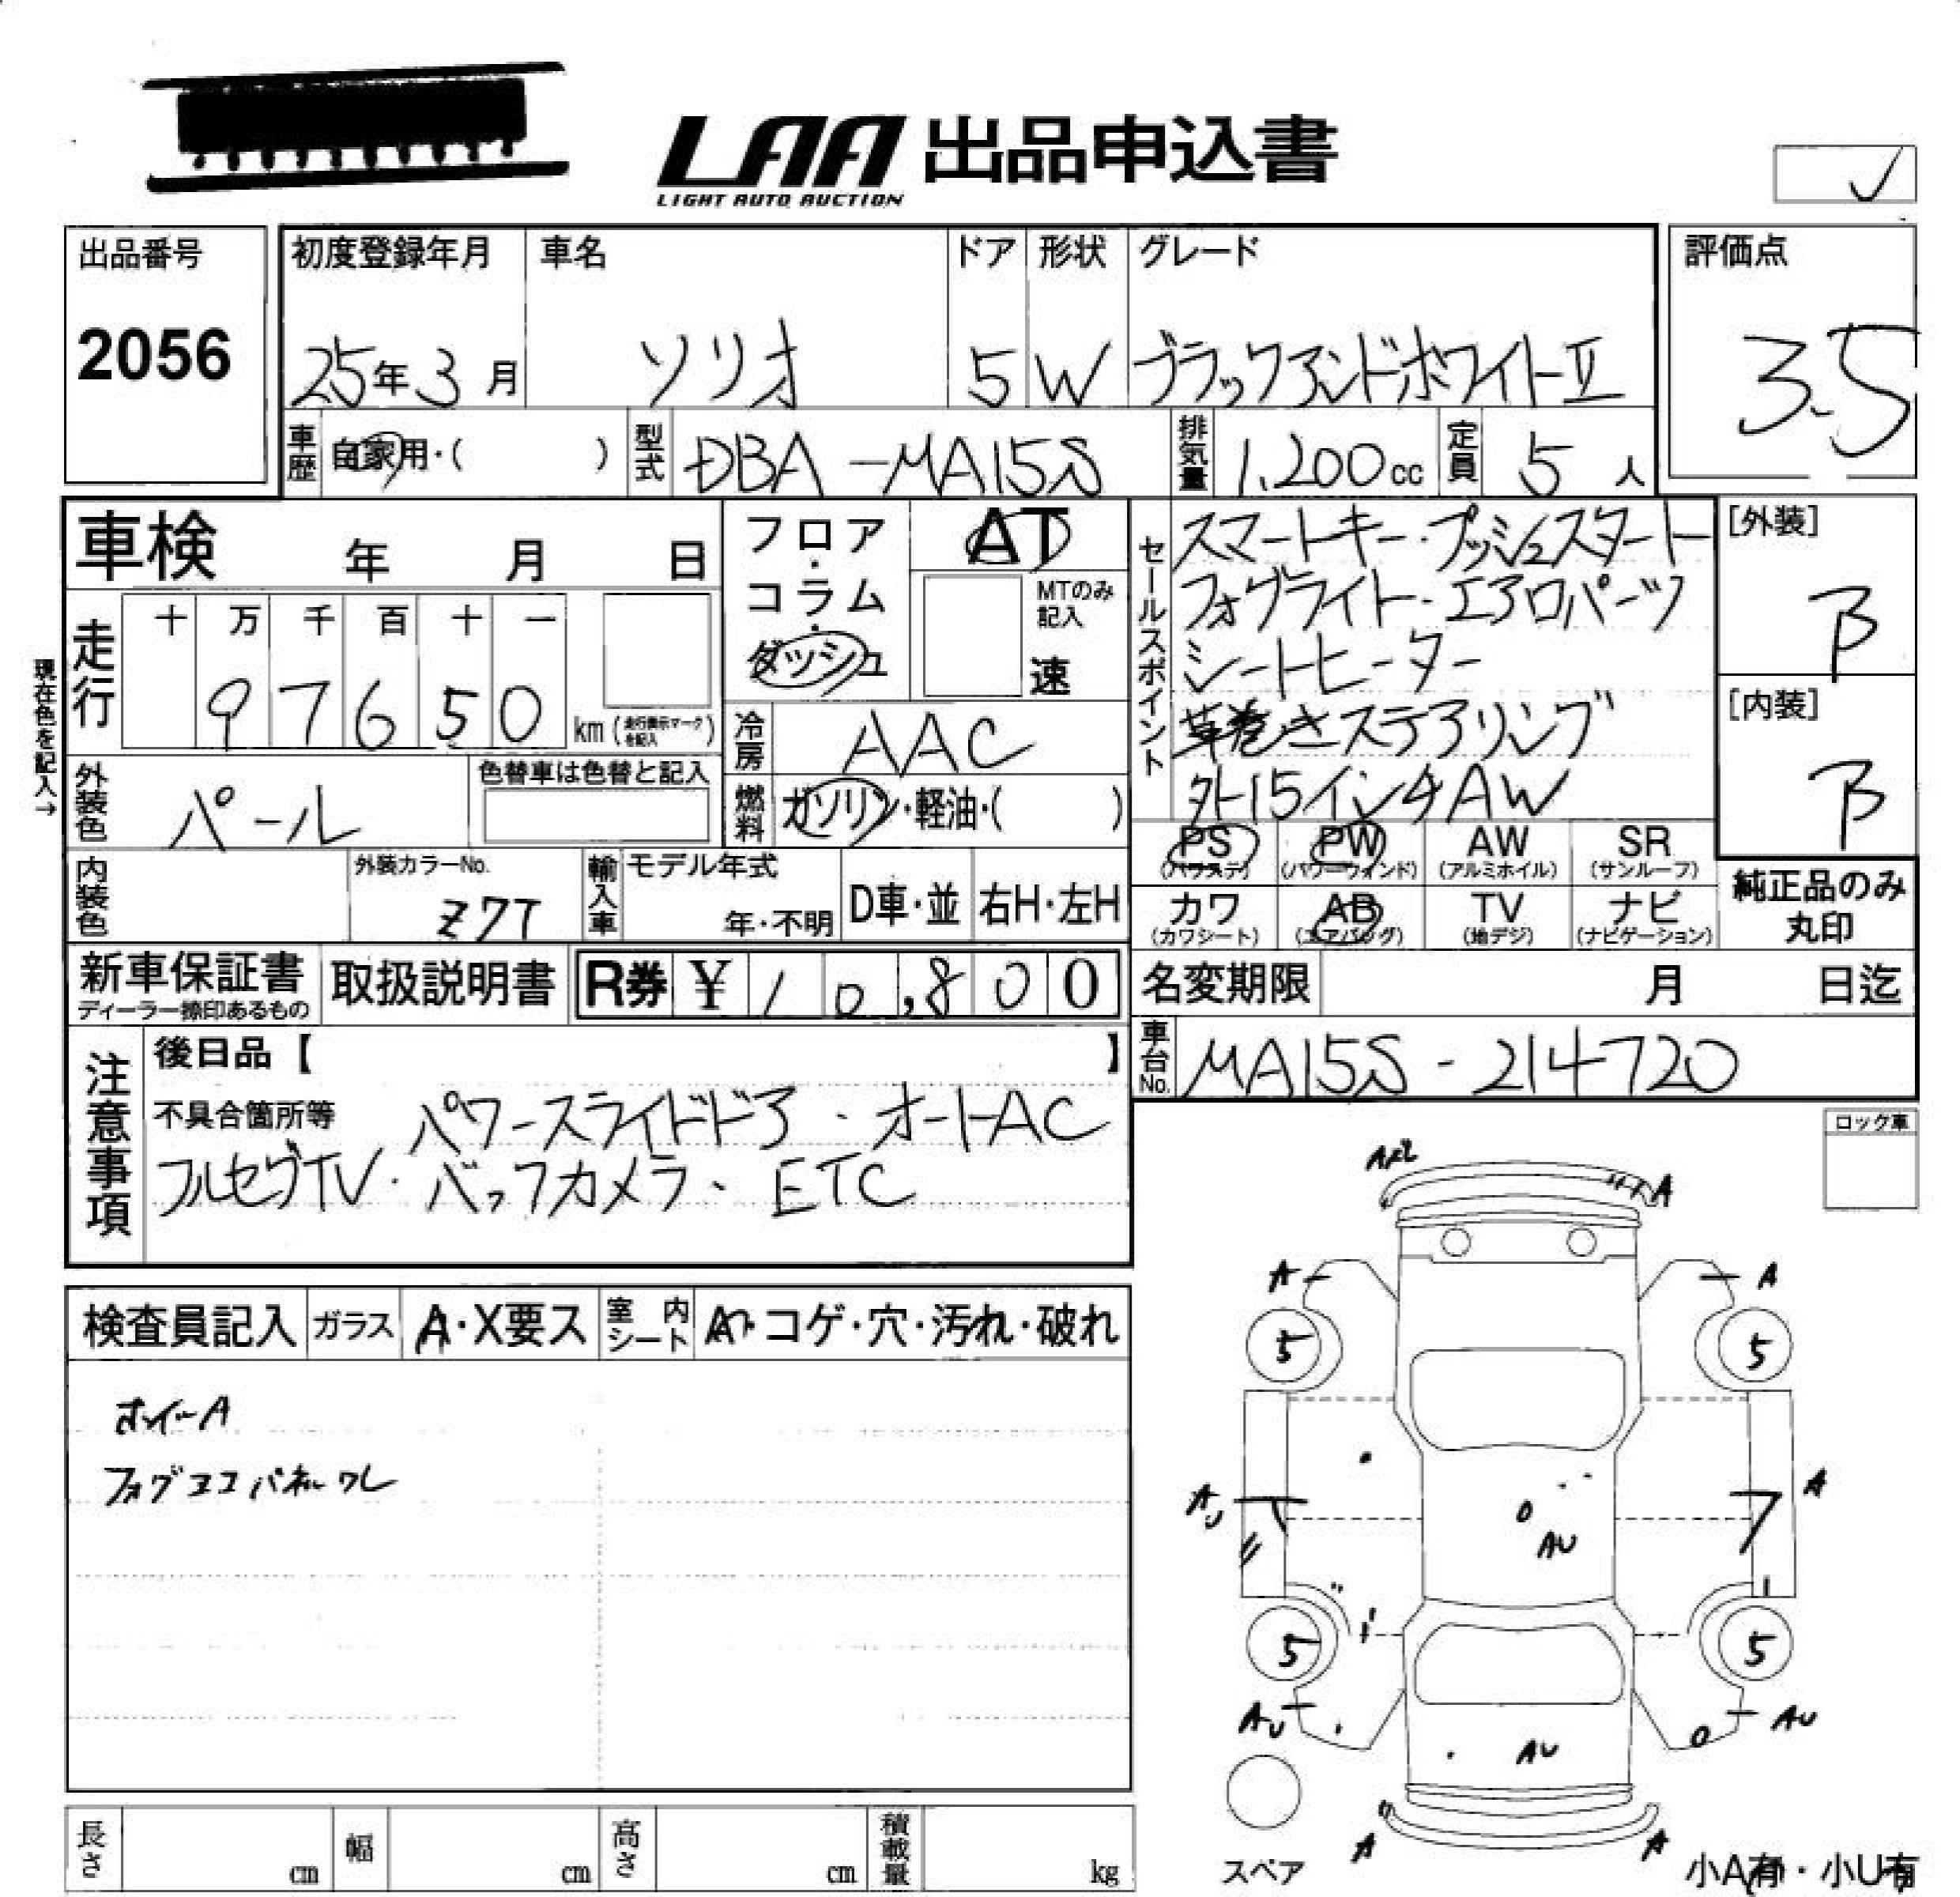 LAA 出品申込書
LIGHT AUTO AUCTION
出品番号 初度登録年月 車名 ドア 形状 グレード 評価点
2056 25年3月 ソリオ 5 W ブラックアンドホワイトⅡ 3.5
車歴 自家用・( ) 型式 DBA-MA15S 排気量 1,200cc 定員 5人
車検 年 月 日
フロア・コラム・ダッシュ
AT
MTのみ記入
速
セールスポイント
スマートキー・プッシュスタート
フォグライト・エアロパーツ
シートヒーター
革巻きステアリング
外15インチAW
[外装]
B
[内装]
B
現在色を記入→
走行 十 万 千 百 十 一
97650 km(走行表示マークを記入)
冷房 AAC
外装色 パール 色替車は色替と記入
燃料 ガソリン・軽油・( )
PS (パワステ) PW (パワーウィンド) AW (アルミホイル) SR (サンルーフ)
カワ (カワシート) AB (エアバッグ) TV (地デジ) ナビ (ナビゲーション)
純正品のみ丸印
内装色 外装カラーNo. Z7T 輸入車 モデル年式 年・不明 D車・並 右H・左H
新車保証書 取扱説明書 R券 ¥ 10,800 名変期限 月 日迄
ディーラー捺印あるもの
注意事項 後日品【 】
車台No. MA15S-214720
不具合箇所等 パワースライドドア・オートAC
フルセグTV・バックカメラ・ETC
ロック車
検査員記入 ガラス A・X要ス 室内シート A・コゲ・穴・汚れ・破れ
ホイールA
フォグヨコパネルワレ
A
A A
5 5
AU A
AU
5 5
AU AU
AU
A A
スペア
小A有・小U有
長さ cm 幅 cm 高さ cm 積載量 kg